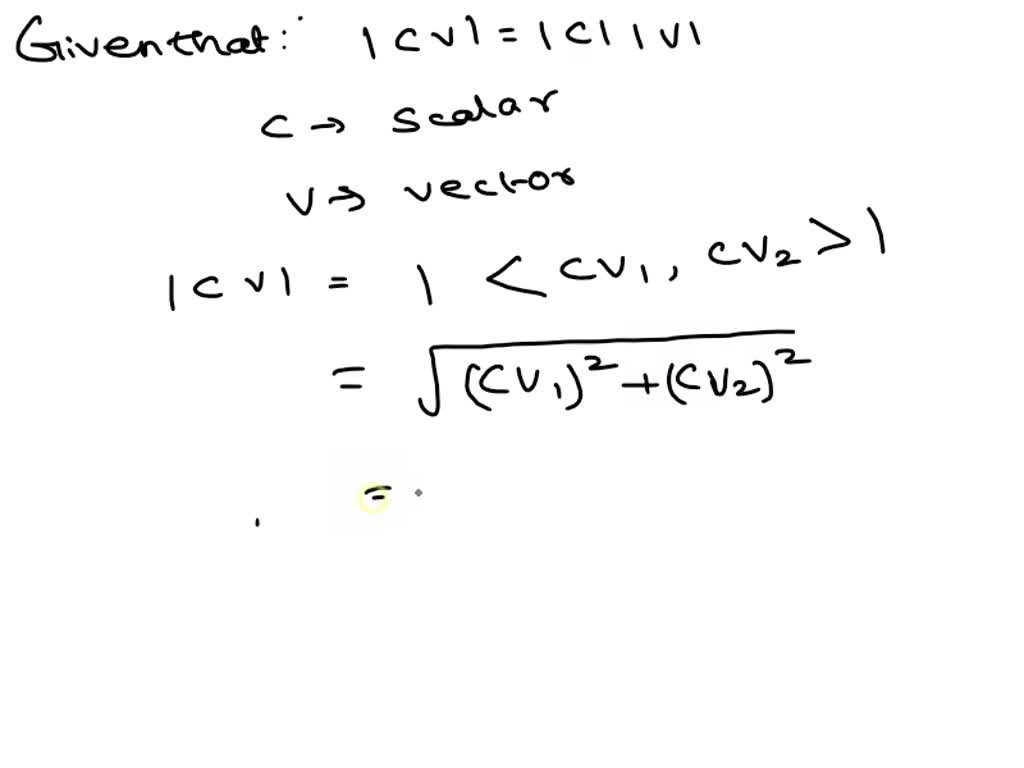 Given that: |cv| = |c| |v|
c → scalar
v → vector
|cv| = |<cv₁, cv₂>|
= √(cv₁)² + (cv₂)²
=